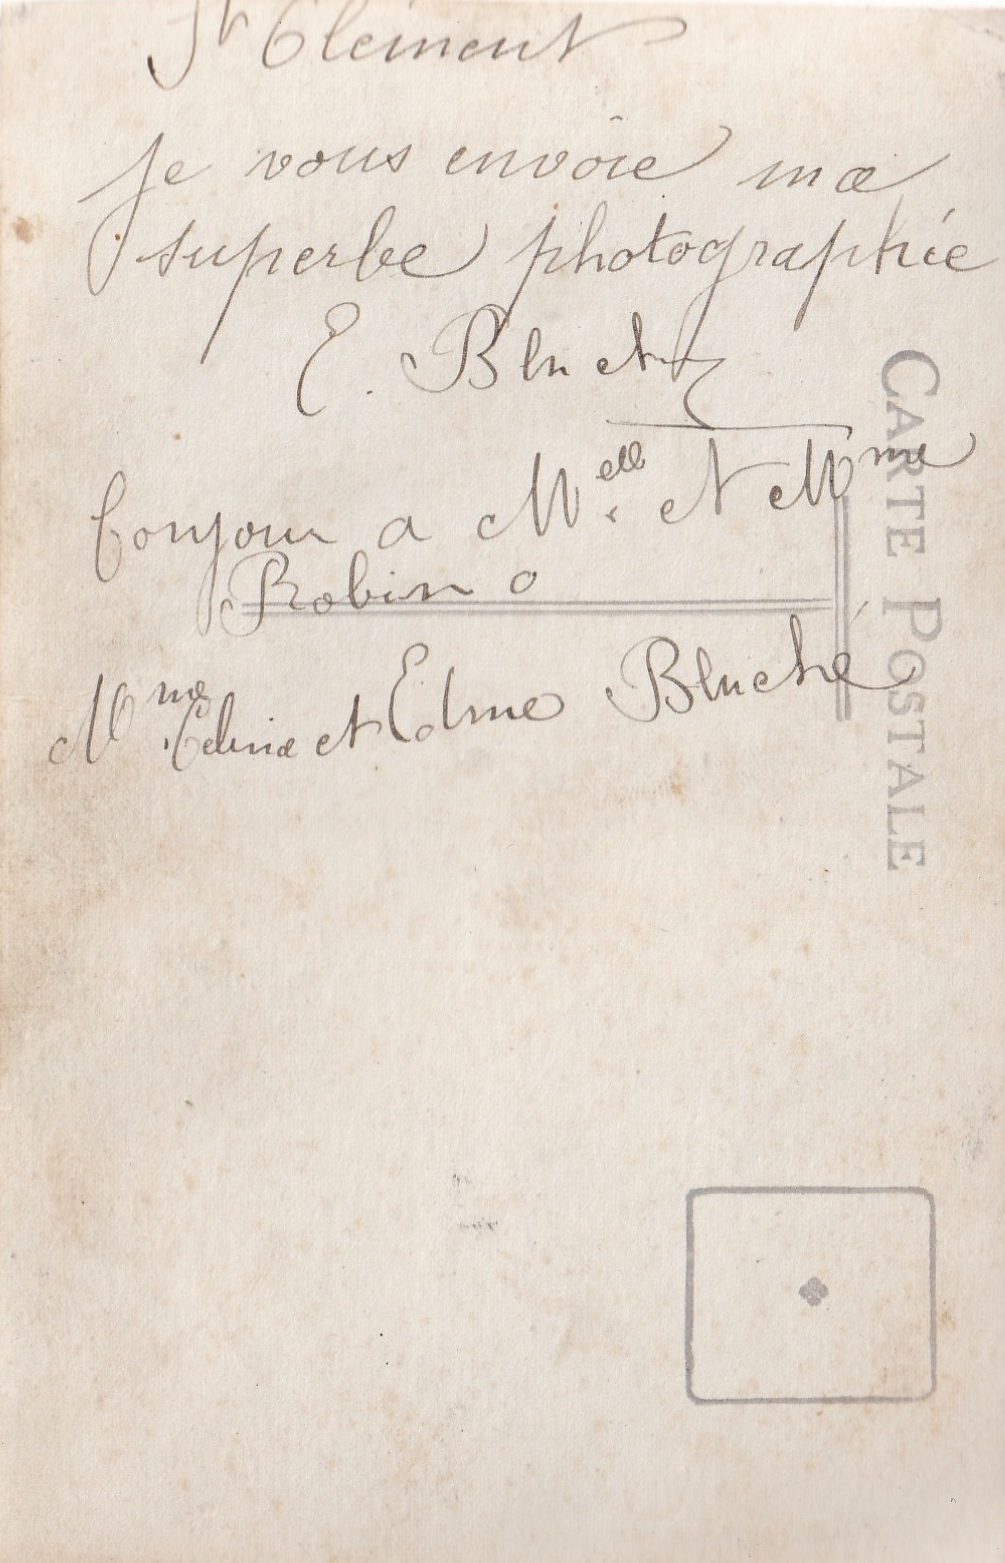 St Clément
je vous envoie ma
superbe photographie
E. Bluché
bonjour a Melle et Mme
Robin
Mme Celina et Edme Bluché
CARTE POSTALE